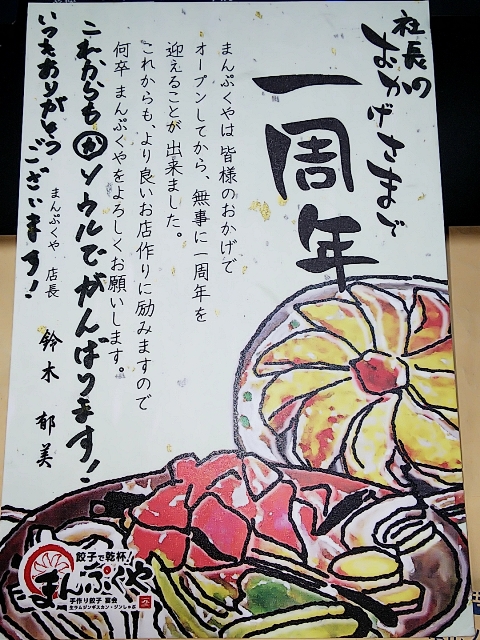 社長の
おかげさまで
一周年
まんぷくやは 皆様のおかげで
オープンしてから、無事に一周年を
迎えることが 出来ました。
これからも、より良いお店作りに励みますので
何卒 まんぷくやをよろしくお願いします。
これからも㋕ソウルでがんばります!
いつもありがとうございます!
まんぷくや 店長 鈴木 郁美
餃子で乾杯!
まんぷくや
手作り餃子 宴会
生ラムジンギスカン・ジンしゃぶ